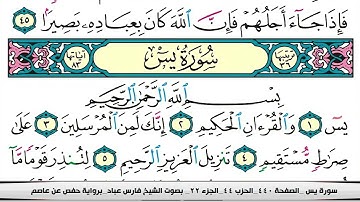 فَإِذَا جَآءَ أَجَلُهُمْ فَإِنَّ ٱللَّهَ كَانَ بِعِبَادِهِۦ بَصِيرًۢا ٤٥
ترتيبها ٣٦ سُورَةُ يسٓ آياتها ٨٣
بِسْمِ ٱللَّهِ ٱلرَّحْمَٰنِ ٱلرَّحِيمِ
يسٓ ١ وَٱلْقُرْءَانِ ٱلْحَكِيمِ ٢ إِنَّكَ لَمِنَ ٱلْمُرْسَلِينَ ٣ عَلَىٰ
صِرَٰطٍ مُّسْتَقِيمٍ ٤ تَنزِيلَ ٱلْعَزِيزِ ٱلرَّحِيمِ ٥ لِتُنذِرَ قَوْمًا مَّآ
سورة يس_ الصفحة ٤٤٠_ الحزب ٤٤_ الجزء ٢٢_ بصوت الشيخ فارس عباد_ برواية حفص عن عاصم